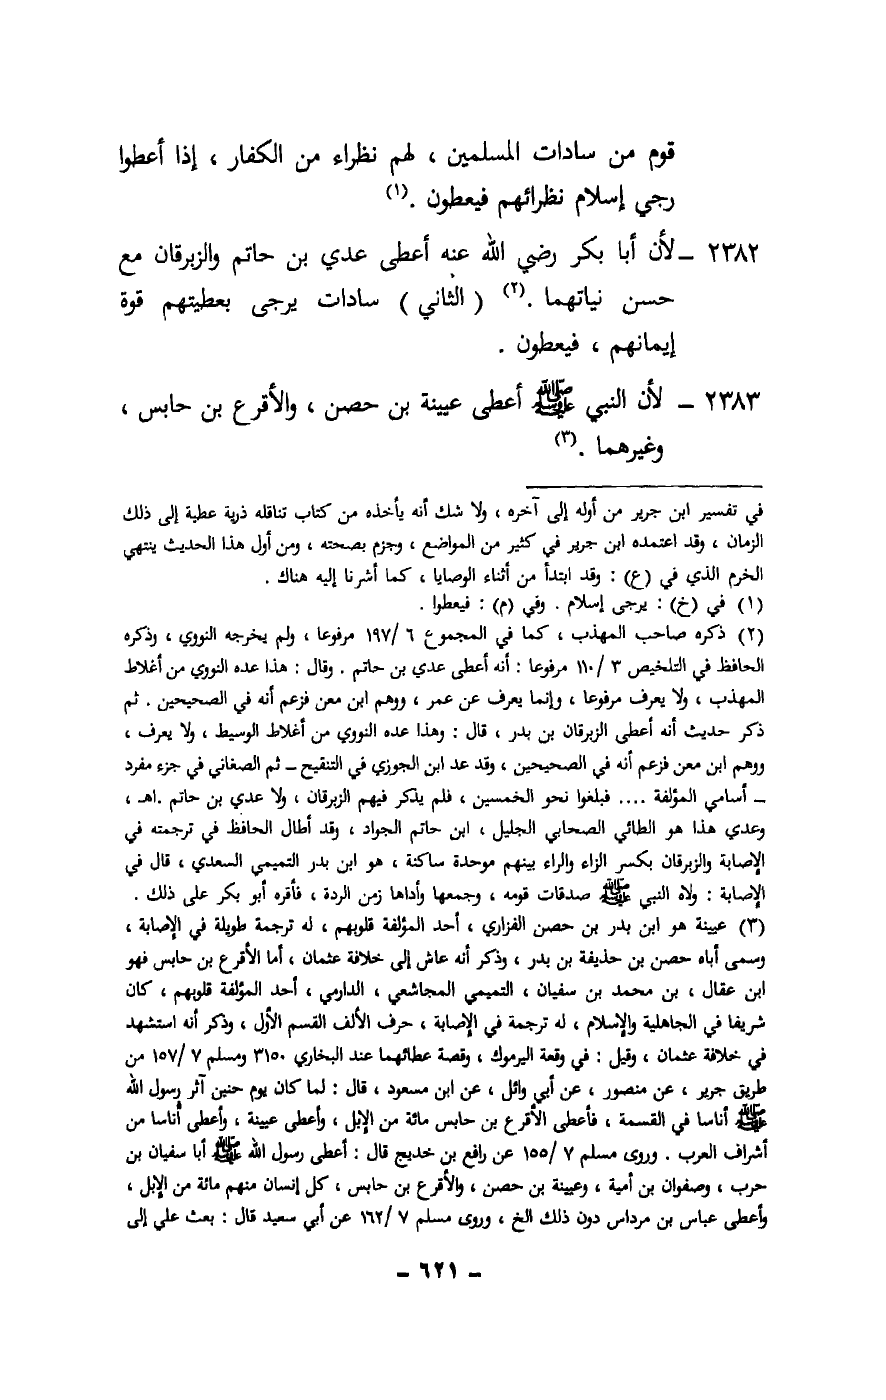 قوم من سادات المسلمين ، لهم نظراء من الكفار ، إذا أعطوا
رجي إسلام نظرائهم فيعطون .(١)
٢٣٨٢ – لأن أبا بكر رضي الله عنه أعطى عدي بن حاتم والزبرقان مع
حسن نياتهما .(٢) ( الثاني ) سادات يرجى بعطيتهم قوة
إيمانهم ، فيعطون .
٢٣٨٣ – لأن النبي ﷺ أعطى عيينة بن حصن ، والأقرع بن حابس ،
وغيرهما .(٣)
في تفسير ابن جرير من أوله إلى آخره ، ولا شك أنه يأخذه من كتاب تناقله ذرية عطية إلى ذلك
الزمان ، وقد اعتمده ابن جرير في كثير من المواضع ، وجزم بصحته ، ومن أول هذا الحديث ينتهي
الخرم الذي في (ع) : وقد ابتدأ من أثناء الوصايا ، كما أشرنا إليه هناك .
(١) في (خ) : يرجى إسلام . وفي (م) : فيعطوا .
(٢) ذكره صاحب المهذب ، كما في المجموع ٦ /١٩٧ مرفوعا ، ولم يخرجه النووي ، وذكره
الحافظ في التلخيص ٣ /١١٠ مرفوعا : أنه أعطى عدي بن حاتم . وقال : هذا عده النووي من أغلاط
المهذب ، ولا يعرف مرفوعا ، وإنما يعرف عن عمر ، ووهم ابن معن فزعم أنه في الصحيحين . ثم
ذكر حديث أنه أعطى الزبرقان بن بدر ، قال : وهذا عده النووي من أغلاط الوسيط ، ولا يعرف ،
ووهم ابن معن فزعم أنه في الصحيحين ، وقد عد ابن الجوزي في التنقيح – ثم الصغاني في جزء مفرد
– أسامي المؤلفة .... فبلغوا نحو الخمسين ، فلم يذكر فيهم الزبرقان ، ولا عدي بن حاتم .اهـ ،
وعدي هذا هو الطائي الصحابي الجليل ، ابن حاتم الجواد ، وقد أطال الحافظ في ترجمته في
الإصابة والزبرقان بكسر الزاء والراء بينهم موحدة ساكنة ، هو ابن بدر التميمي السعدي ، قال في
الإصابة : ولاه النبي ﷺ صدقات قومه ، وجمعها وأداها زمن الردة ، فأقره أبو بكر على ذلك .
(٣) عيينة هو ابن بدر بن حصن الفزاري ، أحد المؤلفة قلوبهم ، له ترجمة طويلة في الإصابة ،
وسمى أباه حصن بن حذيفة بن بدر ، وذكر أنه عاش إلى خلافة عثمان ، أما الأقرع بن حابس فهو
ابن عقال ، بن محمد بن سفيان ، التميمي المجاشعي ، الدارمي ، أحد المؤلفة قلوبهم ، كان
شريفا في الجاهلية والإسلام ، له ترجمة في الإصابة ، حرف الألف القسم الأول ، وذكر أنه استشهد
في خلافة عثمان ، وقيل : في وقعة اليرموك ، وقصة عطائهما عند البخاري ٣١٥٠ ومسلم ٧ /١٥٧ من
طريق جرير ، عن منصور ، عن أبي وائل ، عن ابن مسعود ، قال : لما كان يوم حنين آثر رسول الله
ﷺ أناسا في القسمة ، فأعطى الأقرع بن حابس مائة من الإبل ، وأعطى عيينة ، وأعطى أناسا من
أشراف العرب . وروى مسلم ٧ /١٥٥ عن رافع بن خديج قال : أعطى رسول الله ﷺ أبا سفيان بن
حرب ، وصفوان بن أمية ، وعيينة بن حصن ، والأقرع بن حابس ، كل إنسان منهم مائة من الإبل ،
وأعطى عباس بن مرداس دون ذلك الخ ، وروى مسلم ٧ /١٦٢ عن أبي سعيد قال : بعث علي إلى
– ٦٢١ –